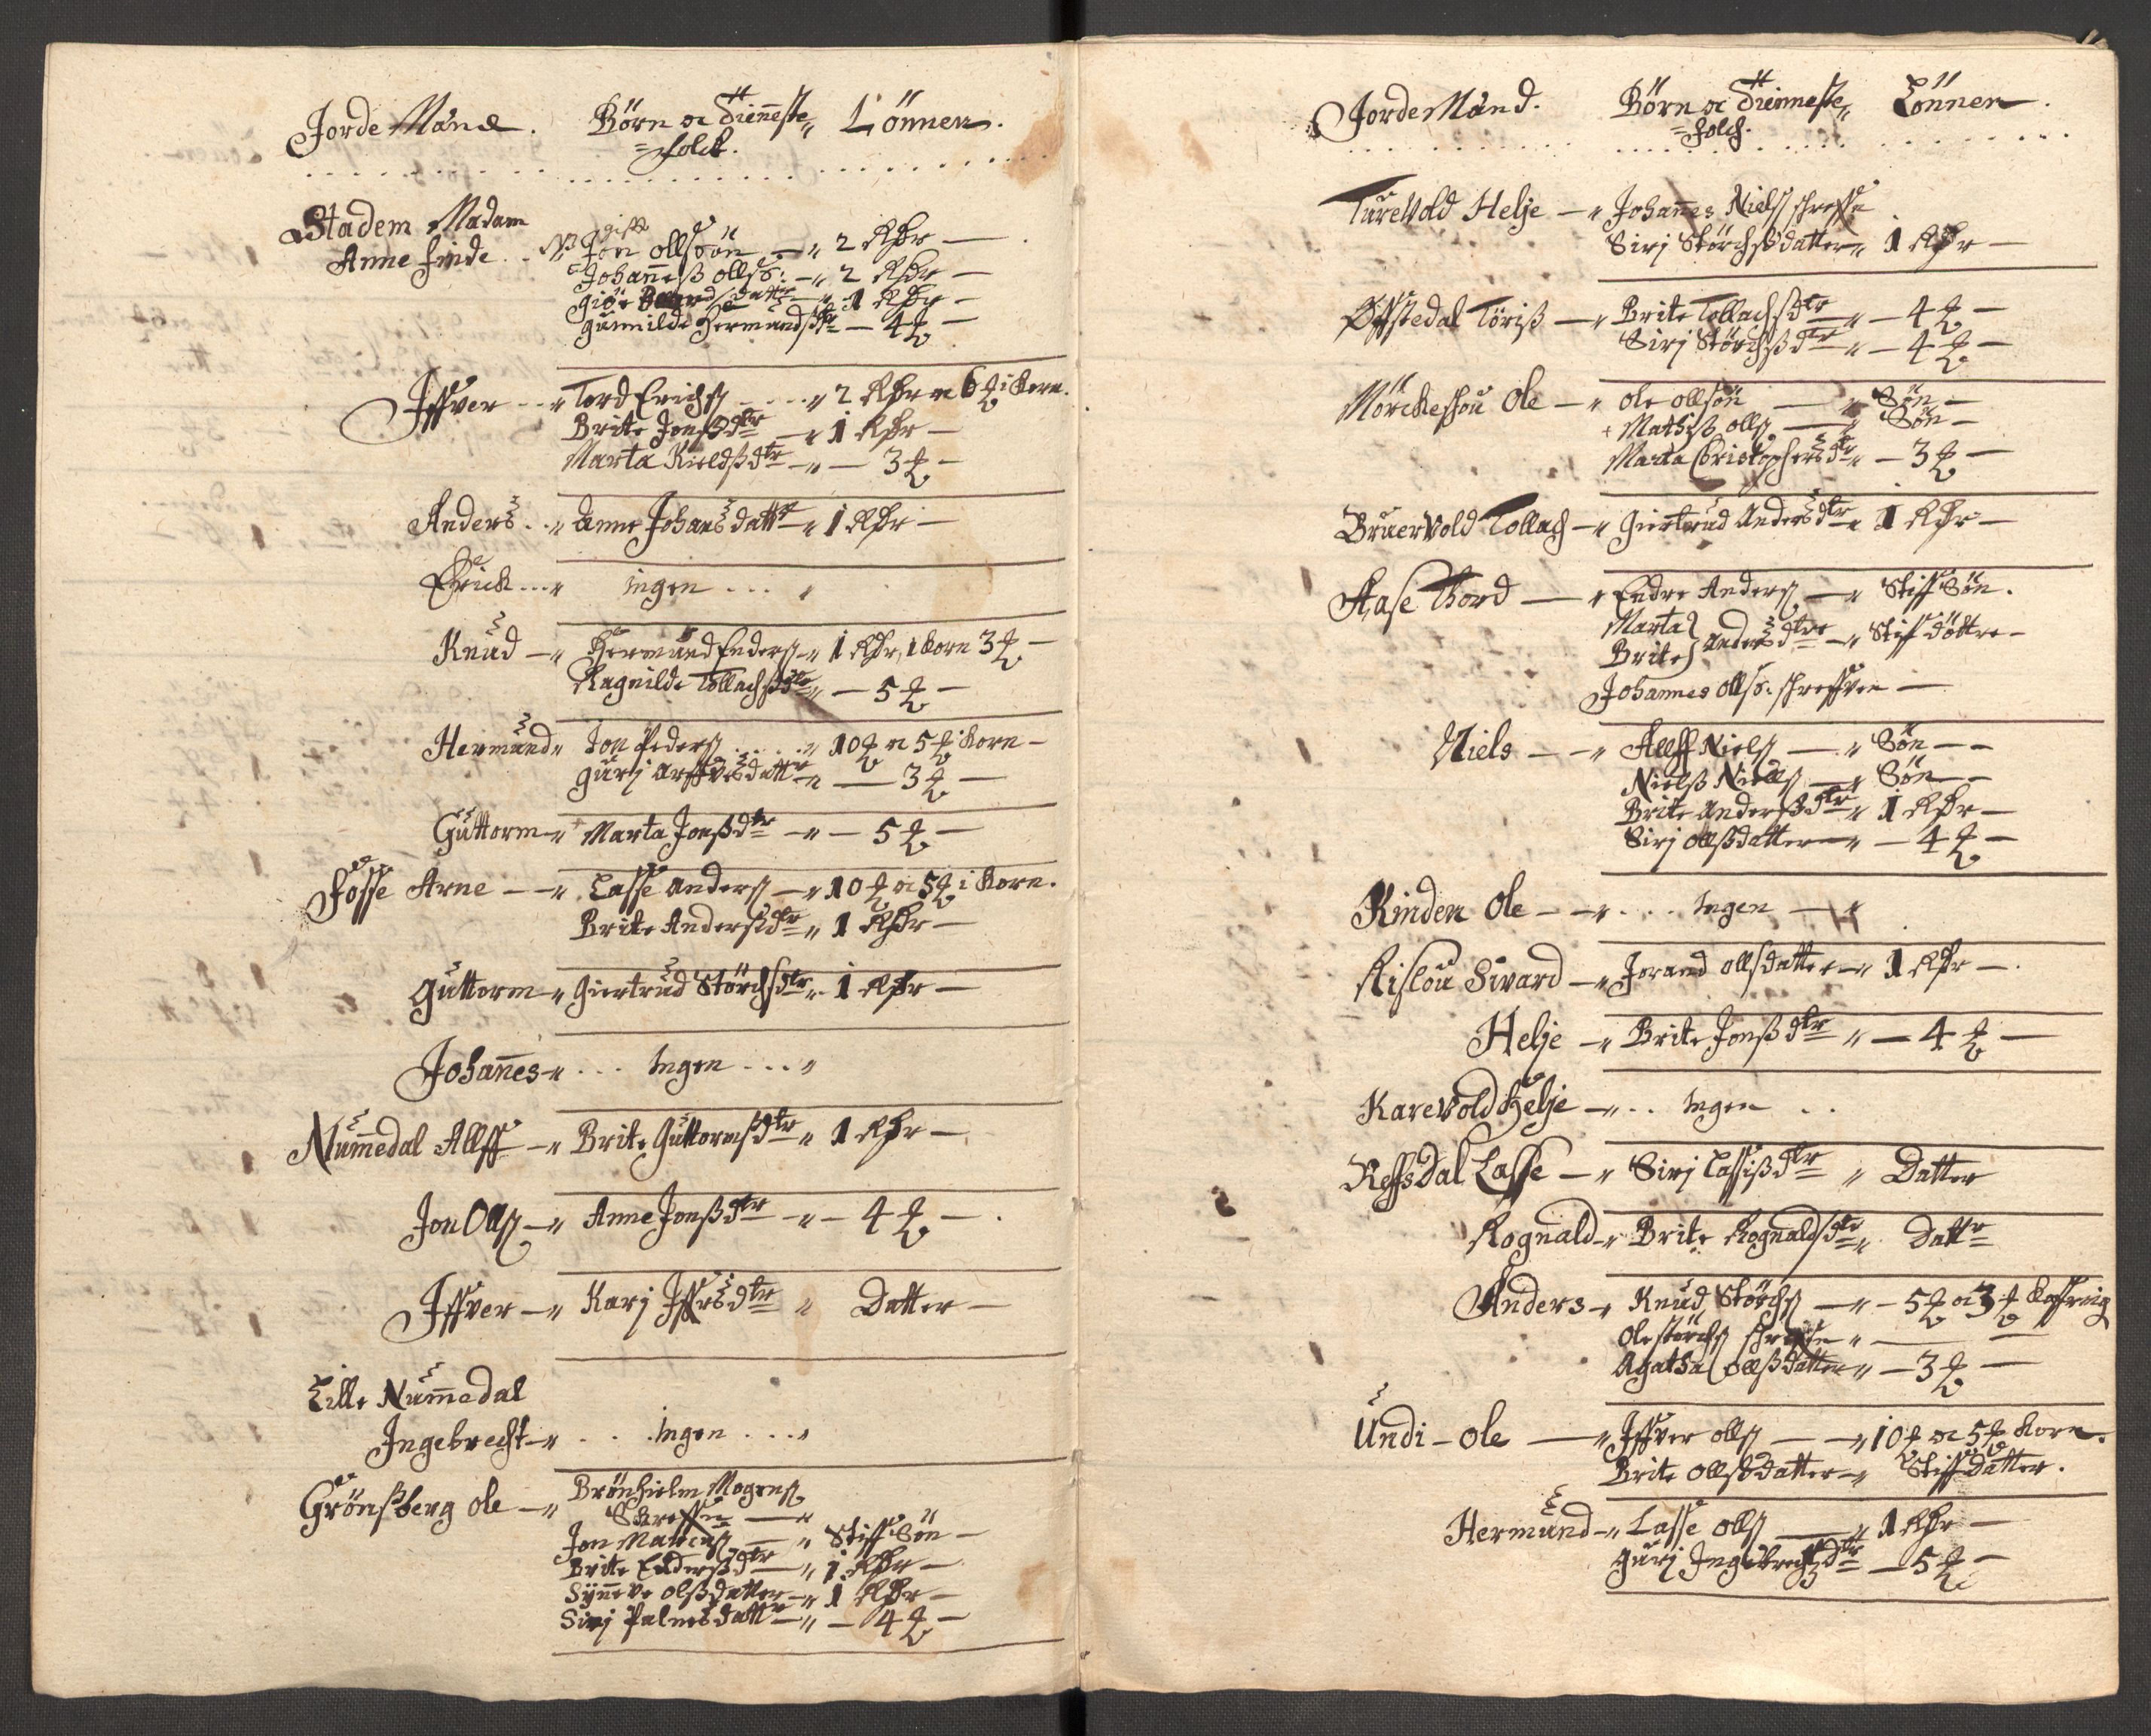 Jorde Mänd. Börn oc Tienneste Lönnen.
=folck.
Stadem Madam
Anne finde Jon ollsöön 2 Rdr
Johanneß ollsö: 2 Rdr
datter 1 Rdr
gunnilde Hermundßdr 4
Jffver Tord Erichs 2 Rdr oc 6 i Korn.
Brite Jonßdtr 1 Rdr
Marta Kieldßdtr 3
Anders Anne Johansdattr 1 Rdr
Erick ingen
Knud Hermund Enders 1 Rdr, i Korn 3
Ragnilde Tollachßdtr 5
Hermund Jon Peders 10 oc 5 i Korn
gurj dattr 3
Guttorm Marta Jonßdtr 5
Fosse Arne Lasse Anders 10 oc 5 i Korn.
Brite Andersdtr 1 Rdr
Guttorm Giertrud Störchsdtr 1 Rdr
Johannes Ingen
Nummedal Allff Brite Guttormßdtr 1 Rdr
Jon Olls Anne Jonßdtr 4
Jffver Karj Jffrsdtr Datter
Lille Nummedal
Ingebrecht ingen
Grönßberg ole Brönhielm Mogens
Jon Stiff Sön
Brite Enderßdtr 1 Rdr
Synneve olßdatter 1 Rdr
Sirj Palmesdattr 4
Jorde Mänd. Börn oc Tienneste Lönnen.
=folch.
Turevold Helje Johannes Niels
Sirj Störchßdatter 1 Rdr
Öffstedal Töriß Brite Tollachsdtr 4
Sirj Störchßdtr 4
Mörckeshou Ole ole ollsön Sön
Mathiß olls Sön
Marta Christophersdtr 3
Bruervold Tollach Giertrud Andersdtr 1 Rdr
Aase Thord Endre Anders Stiff Sön.
Marta
Brite Andersdtre Stif döttre
Johannes ollsö:
Niels Allff Niels Sön
Nielß Niels Sön
Brite Anderßdtr 1 Rdr
Sirj ollßdatter 4
Rinden Ole Ingen
Rislou Sivard Jorand ollsdatter 1 Rdr
Helje Brite Jonßdtr 4
Karevold Helje Ingen
Reffsdal Lasse Sirj Lassißdtr Datter
Rognald Brite Rognaldsdtr Dattr
Anders Knud Störchs 5 oc 3
ole störchs
Agatha ollßdatter 3
Undi ole Jffver olls 10 oc 5 Korn.
Brite ollßdatter Stiffdatter.
Hermund Lasse olls 1 Rdr
gurj Ingebrechtsdtr 5